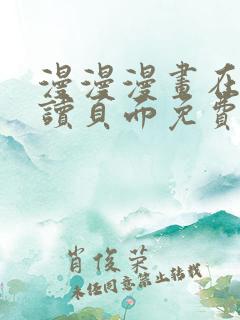 漫漫漫畫在
讀頁面免費
肖俊荣
未经同意禁止转载